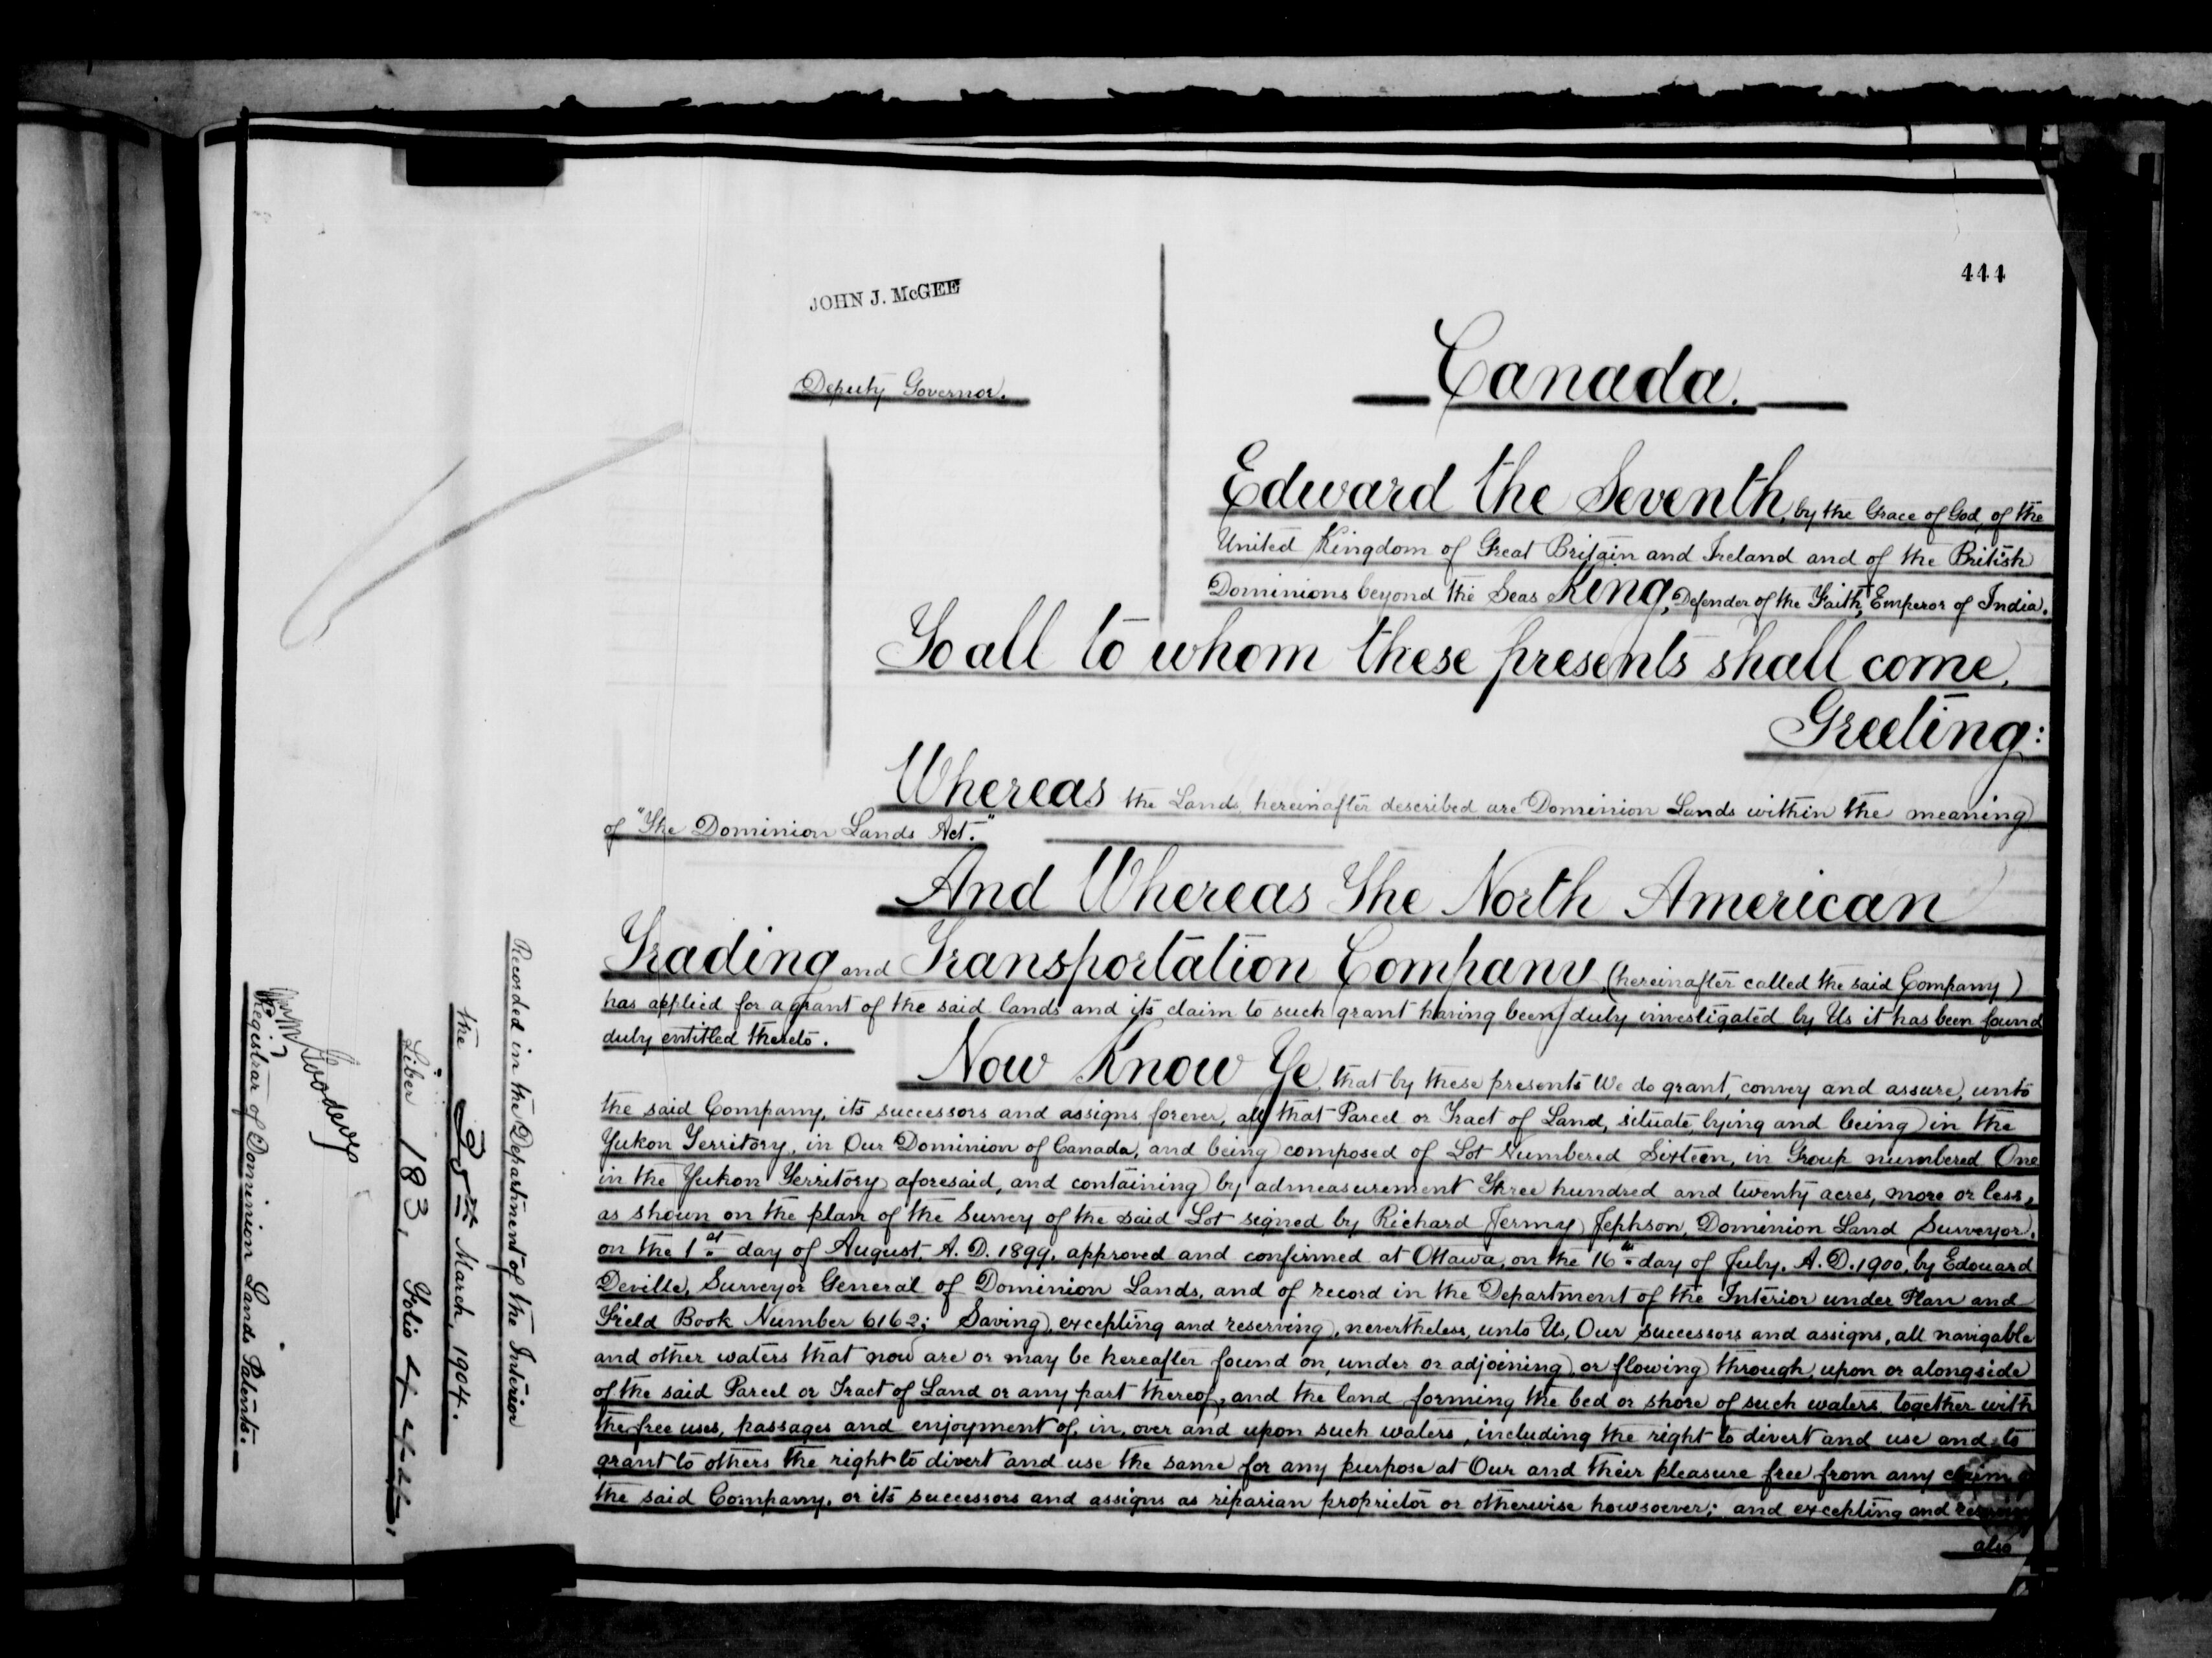 444
JOHN J. McGEE
Deputy Governor.
Canada.
Edward the Seventh, by the Grace of God, of the
United Kingdom of Great Britain and Ireland and of the British
Dominions beyond the Seas King, Defender of the Faith, Emperor of India.
To all to whom these presents shall come,
Greeting:
Whereas the Lands hereinafter described are Dominion Lands within the meaning
of "The Dominion Lands Act."
And Whereas The North American
Trading and Transportation Company, (hereinafter called the said Company)
has applied for a grant of the said lands and its claim to such grant having been duly investigated by Us it has been found
duly entitled thereto.
Now Know Ye, that by these presents We do grant, convey and assure, unto
the said Company, its successors and assigns forever, all that Parcel or Tract of Land, situate, lying and being in the
Yukon Territory, in Our Dominion of Canada, and being composed of Lot Numbered Sixteen, in Group numbered One
in the Yukon Territory aforesaid, and containing by admeasurement Three hundred and twenty acres, more or less,
as shown on the plan of the Survey of the said Lot signed by Richard Jermy Jephson, Dominion Land Surveyor,
on the 1st day of August, A. D. 1899, approved and confirmed at Ottawa, on the 16th day of July, A. D. 1900, by Edouard
Deville, Surveyor General of Dominion Lands, and of record in the Department of the Interior under Plan and
Field Book Number 6162; Saving, excepting and reserving, nevertheless, unto Us, Our successors and assigns, all navigable
and other waters that now are or may be hereafter found on, under or adjoining, or flowing through, upon or alongside
of the said Parcel or Tract of Land or any part thereof, and the land forming the bed or shore of such waters together with
the free uses, passages and enjoyment of, in, over and upon such waters, including the right to divert and use and to
grant to others the right to divert and use the same for any purpose at Our and their pleasure free from any claim
the said Company, or its successors and assigns as riparian proprietor or otherwise howsoever; and excepting and
also
Recorded in the Department of the Interior
the 25th March, 1904.
Liber 183, Folio 444,
Goodeve
Registrar of Dominion Lands Patents.